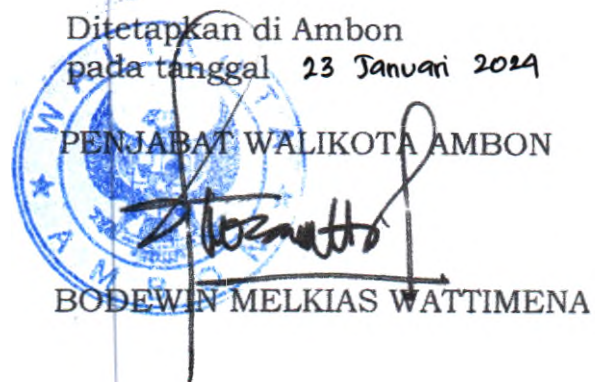 Ditetapkan di Ambon
pada tanggal 23 Januari 2024
PENJABAT WALIKOTA AMBON
WALIKOTA
AMBON
BODEWIN MELKIAS WATTIMENA